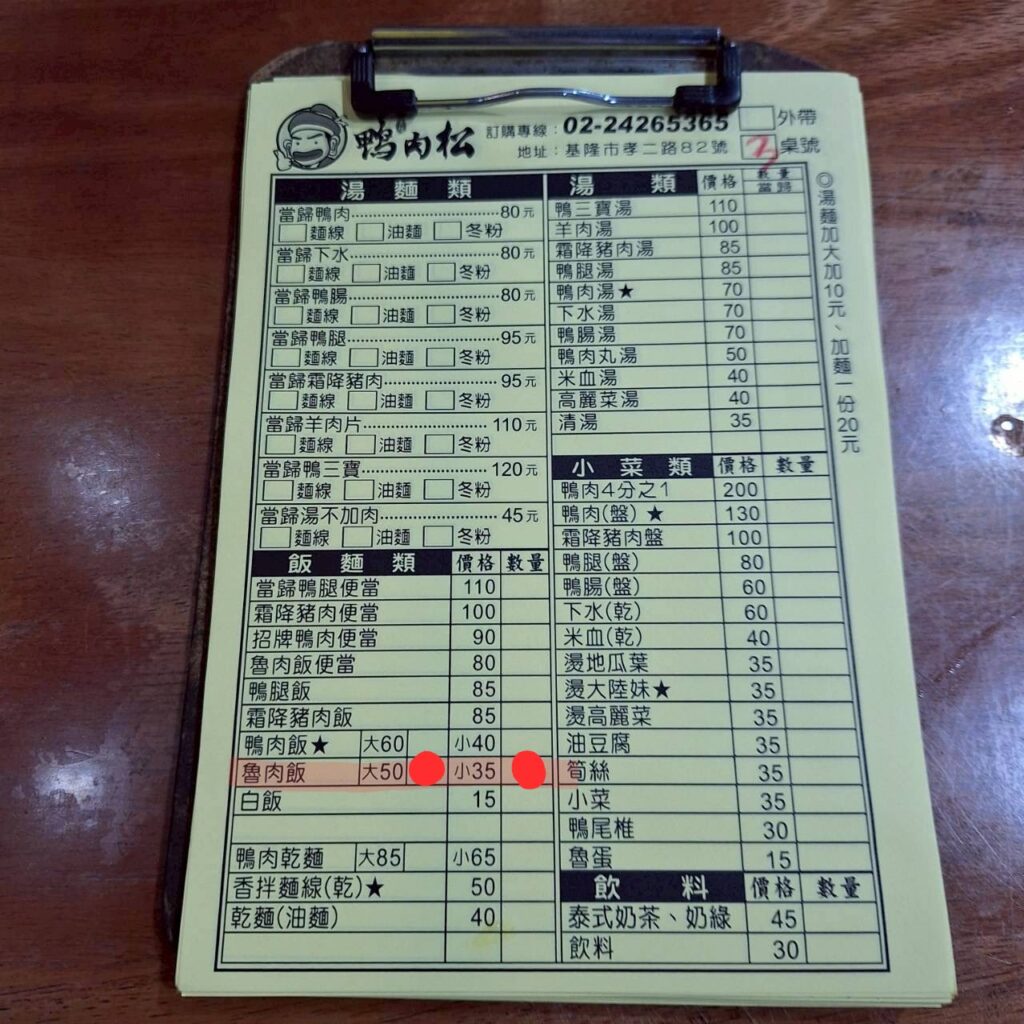 鴨肉松 訂購專線：02-24265365 外帶
地址：基隆市孝二路82號 桌號
湯麵類
當歸鴨肉 80元
麵線 油麵 冬粉
當歸下水 80元
麵線 油麵 冬粉
當歸鴨腸 80元
麵線 油麵 冬粉
當歸鴨腿 95元
麵線 油麵 冬粉
當歸霜降豬肉 95元
麵線 油麵 冬粉
當歸羊肉片 110元
麵線 油麵 冬粉
當歸鴨三寶 120元
麵線 油麵 冬粉
當歸湯不加肉 45元
麵線 油麵 冬粉
飯麵類 價格 數量
當歸鴨腿便當 110
霜降豬肉便當 100
招牌鴨肉便當 90
魯肉飯便當 80
鴨腿飯 85
霜降豬肉飯 85
鴨肉飯★ 大60 小40
魯肉飯 大50 小35
白飯 15
鴨肉乾麵 大85 小65
香拌麵線(乾)★ 50
乾麵(油麵) 40
湯類 價格 數量
當歸
鴨三寶湯 110
羊肉湯 100
霜降豬肉湯 85
鴨腿湯 85
鴨肉湯★ 70
下水湯 70
鴨腸湯 70
鴨肉丸湯 50
米血湯 40
高麗菜湯 40
清湯 35
小菜類 價格 數量
鴨肉4分之1 200
鴨肉(盤)★ 130
霜降豬肉盤 100
鴨腿(盤) 80
鴨腸(盤) 60
下水(乾) 60
米血(乾) 40
燙地瓜葉 35
燙大陸妹★ 35
燙高麗菜 35
油豆腐 35
筍絲 35
小菜 35
鴨尾椎 30
魯蛋 15
飲料 價格 數量
泰式奶茶、奶綠 45
飲料 30
◎湯麵加大加10元、加麵一份20元